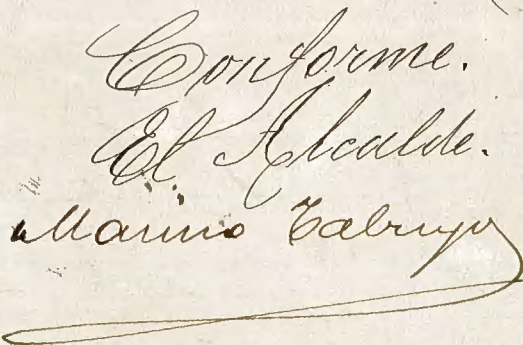 Conforme.
El Alcalde.
Marino Tabuyo